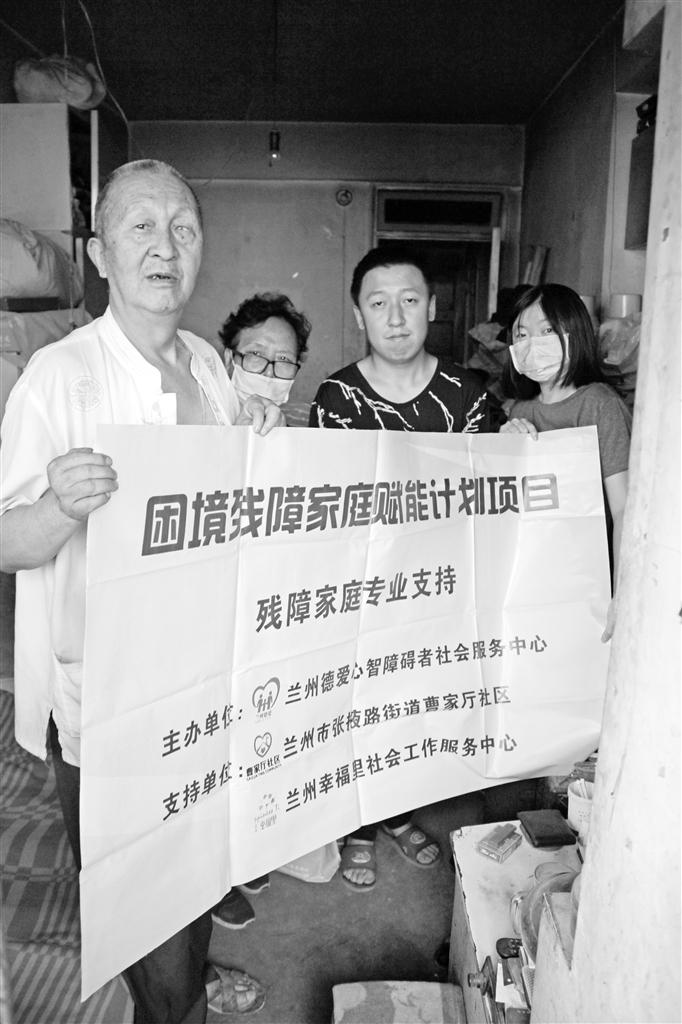 困境残障家庭赋能计划项目
残障家庭专业支持
主办单位：兰州德爱心智障碍者社会服务中心
支持单位：曹家厅社区 兰州市张掖路街道曹家厅社区
兰州幸福里社会工作服务中心